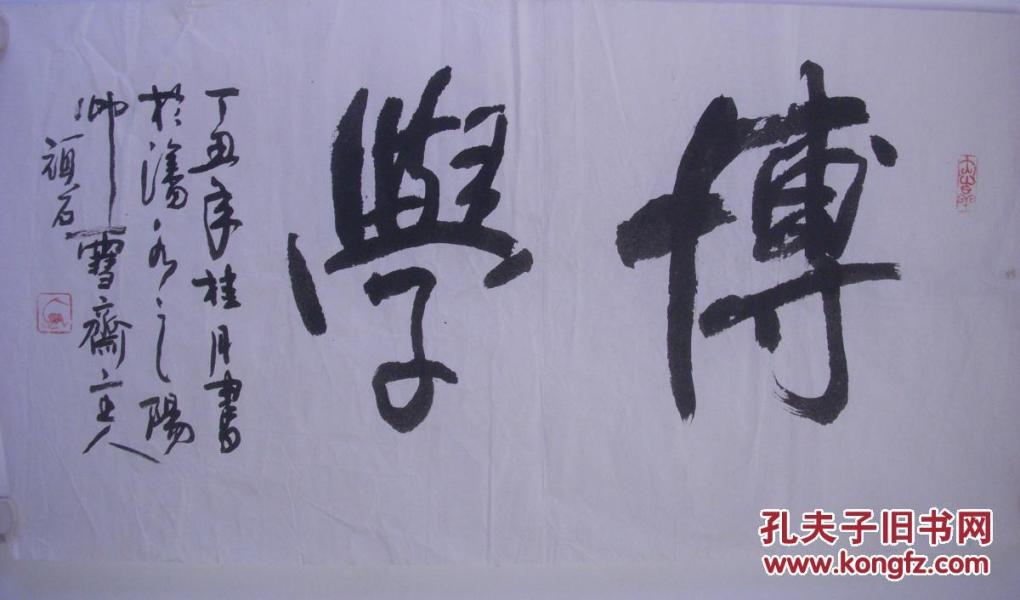 博學
丁丑年桂月書
於瀋水之陽
卧雪齋主人
頑石
孔夫子旧书网
www.kongfz.com